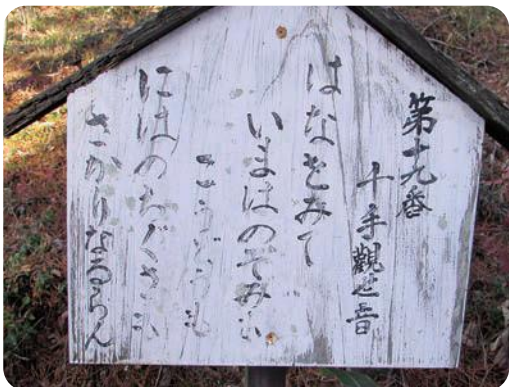 第十九番
千手觀世音
はなをみて
いまはのぞみも
こうどうも
にはのちぐさも
さかりなるらん